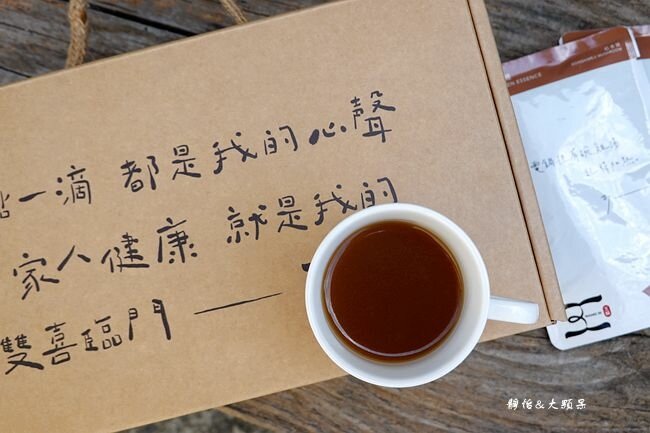 點一滴 都是我的心聲
家人健康 就是我的
雙喜臨門 ——
EN ESSENCE
靜怡&大顆呆